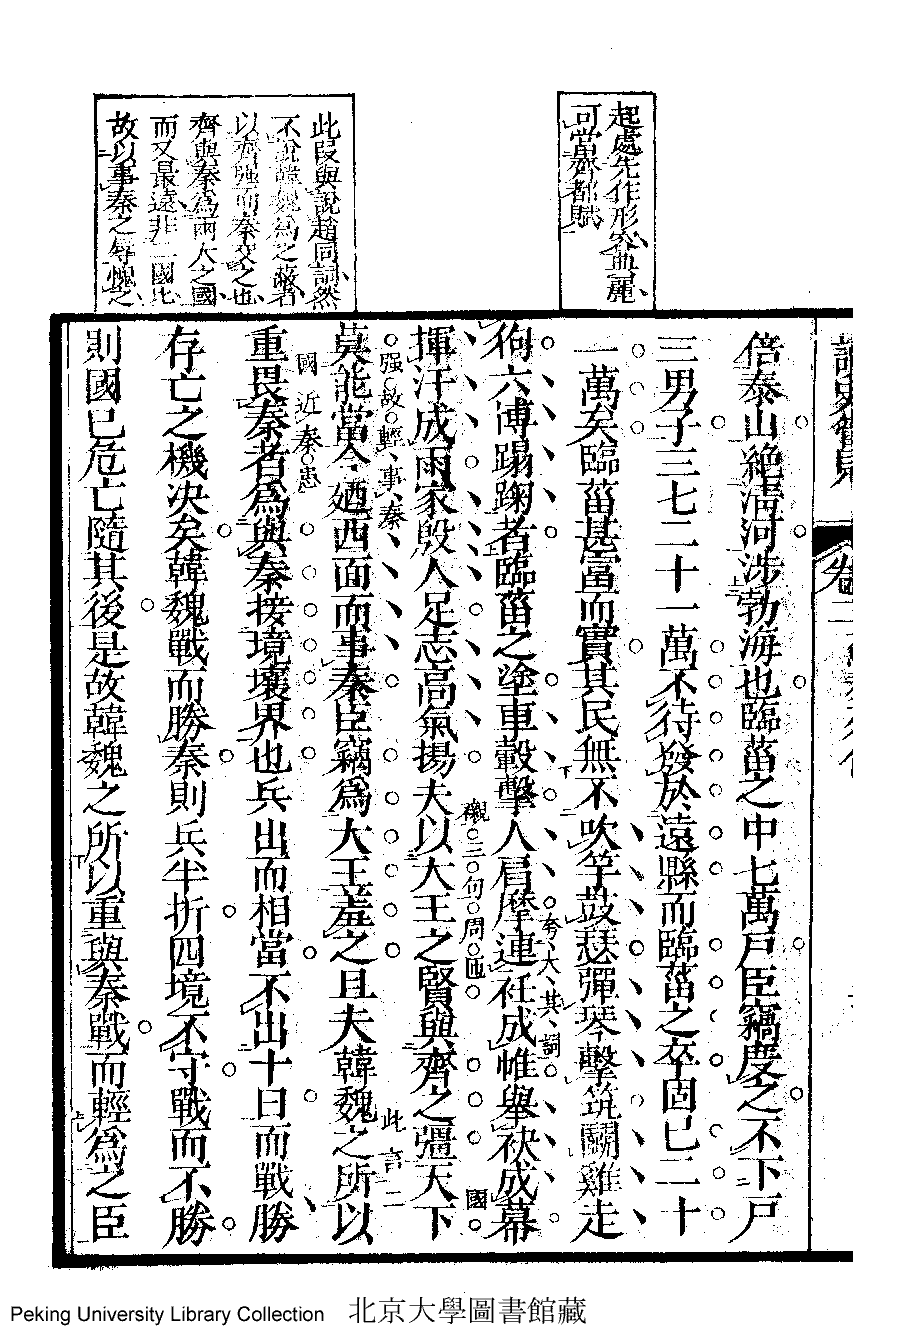 起處先作形容典麗
可當齊都賦
此段與說趙同調然
不說韓魏爲之蔽者
以齊強而秦交之也
齊與秦爲兩大之國
而又最遠非二國比
故以事秦之辱愧之
倍泰山絶清河涉勃海也臨菑之中七萬戸臣竊度之不下戸
三男子三七二十一萬不待發於遠縣而臨菑之卒固已二十
一萬矣臨菑甚富而實其民無不吹竽鼓瑟彈琴擊筑鬭雞走
狗六博蹋踘者臨菑之塗車轂擊人肩摩連袵成帷舉袂成幕
夸大其詞
揮汗成雨家殷人足志高氣揚夫以大王之賢與齊之彊天下
觀三句周匝
國
莫能當今廼西面而事秦臣竊爲大王羞之且夫韓魏之所以
强故輕事秦
此言二
重畏秦者爲與秦接境壤界也兵出而相當不出十日而戰勝
國近秦患
存亡之機決矣韓魏戰而勝秦則兵半折四境不守戰而不勝
則國已危亡隨其後是故韓魏之所以重與秦戰而輕爲之臣
Peking University Library Collection 北京大學圖書館藏